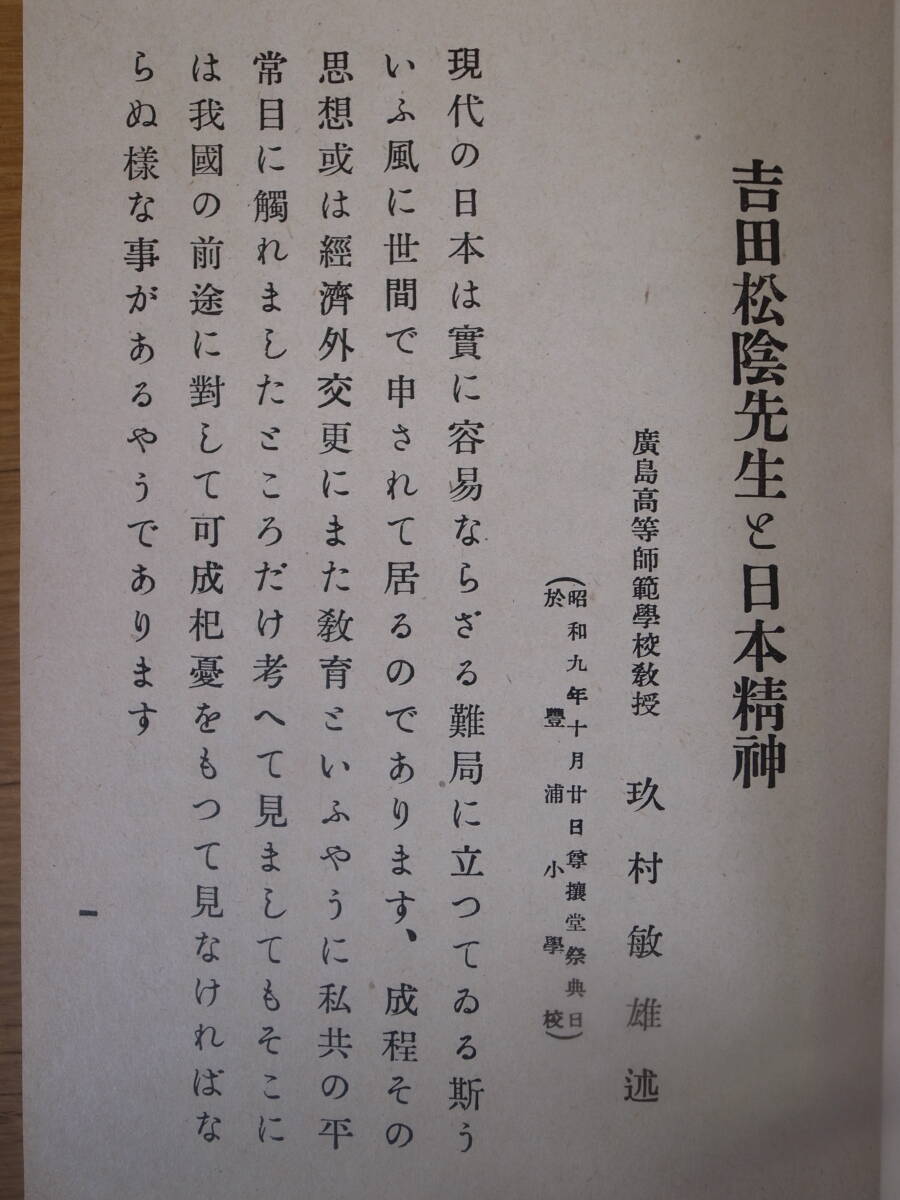 吉田松陰先生と日本精神
廣島高等師範學校敎授 玖村敏雄述
(昭和九年十月廿日尊攘堂祭典日
於豐浦小學校)
現代の日本は實に容易ならざる難局に立つてゐる斯う
いふ風に世間で申されて居るのであります、成程その
思想或は經濟外交更にまた敎育といふやうに私共の平
常目に觸れましたところだけ考へて見ましてもそこに
は我國の前途に對して可成杞憂をもつて見なければな
らぬ樣な事があるやうであります
一